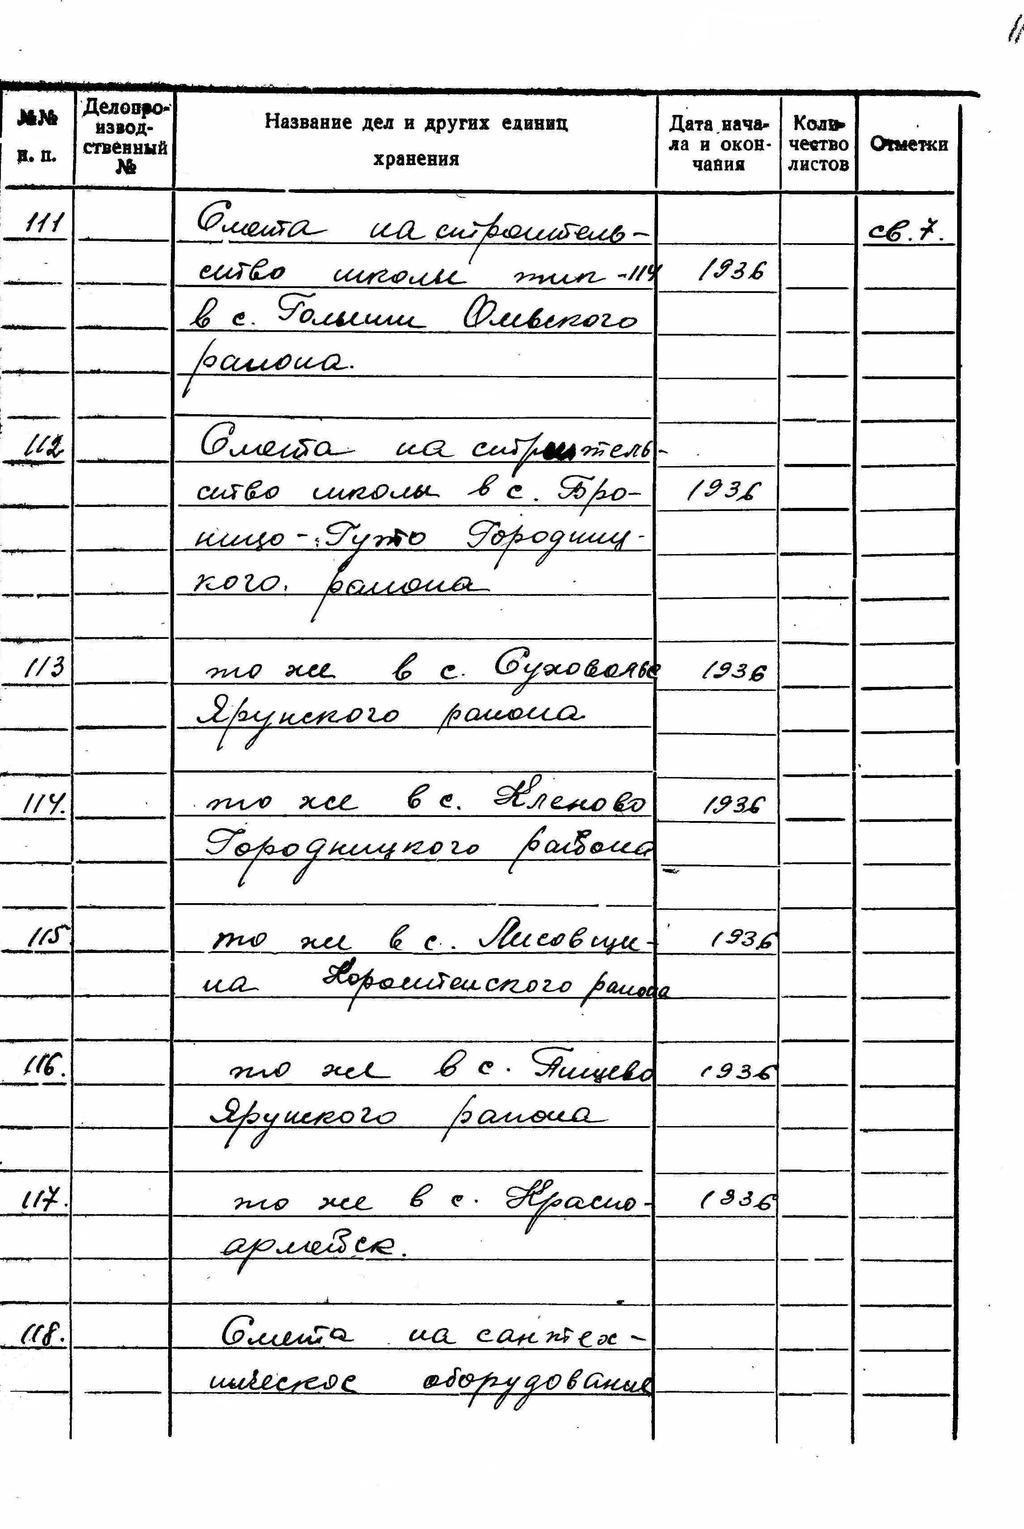 11
№№ п. п.
Делопро-
извод-
ственный
№
Название дел и других единиц
хранения
Дата нача-
ла и окон-
чания
Коли-
чество
листов
Отметки
111 Смета на строитель- св. 7.
ство школы тип -114 1936
в с. Голыши Олевского
района.
112 Смета на строитель-
ство школы в с. Бро- 1936
ницо-Гуто Городниц-
кого района
113 то же в с. Суховолье 1936
Ярунского района
114. то же в с. Кленово 1936
Городницкого района
115 то же в с. Лисовщи- 1936
на Коростенского района
116. то же в с. Пищево 1936
Ярунского района
117. то же в с. Красно- 1936
армейск.
118. Смета на сантех-
ническое оборудование